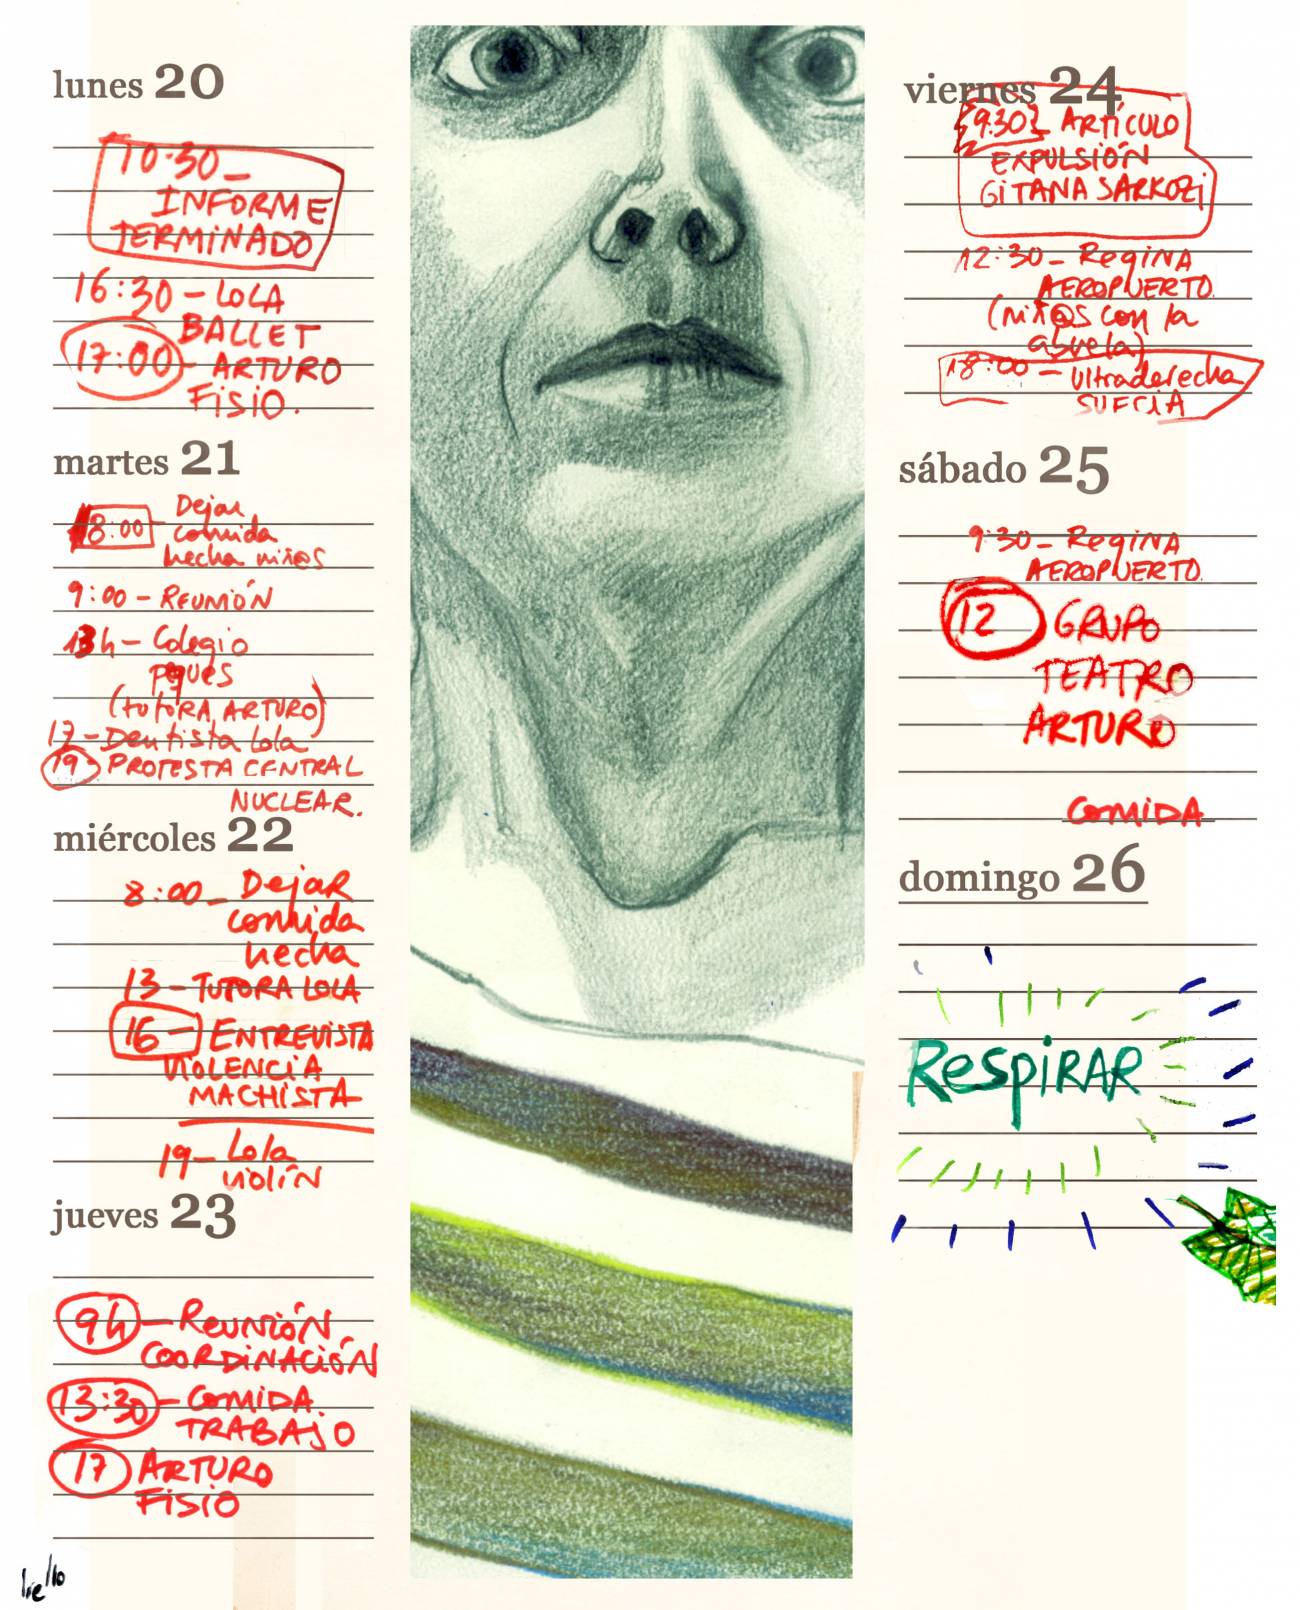 lunes 20
10:30 –
INFORME
TERMINADO
16:30 – LOLA
BALLET
17:00 – ARTURO
FISIO.
martes 21
8:00 – Dejar
comida
hecha niñ@s
9:00 – REUNIÓN
13h – Colegio
peques
(tutORA ARTURO)
17 – Dentista Lola
19 > PROTESTA CENTRAL
NUCLEAR.
miércoles 22
8:00 – Dejar
comida
hecha
13 – TUTORA LOLA
16 – ENTREVISTA
VIOLENCIA
MACHISTA
19 – Lola
violín
jueves 23
9h – REUNIÓN
COORDINACIÓN
13:30 – COMIDA
TRABAJO
17 ARTURO
FISIO
viernes 24
9:30 – ARTÍCULO
EXPULSIÓN
GITANA SARKOZI
12:30 – Regina
AEROPUERTO.
(niñ@s con la
abuela)
18:00 – Ultraderecha
SUECIA
sábado 25
9:30 – Regina
AEROPUERTO.
12 GRUPO
TEATRO
ARTURO
COMIDA
domingo 26
RespiRAR